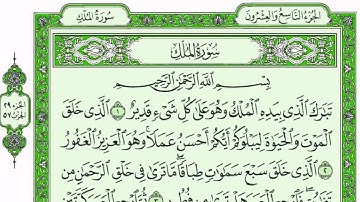 سُورَةُ المُلْكِ
الجُزْءُ التَّاسِعُ وَالعِشْرُونَ
سُورَةُ المُلْكِ
بِسْمِ اللَّهِ الرَّحْمَٰنِ الرَّحِيمِ
تَبَٰرَكَ ٱلَّذِى بِيَدِهِ ٱلْمُلْكُ وَهُوَ عَلَىٰ كُلِّ شَىْءٍ قَدِيرٌ ١ ٱلَّذِى خَلَقَ
ٱلْمَوْتَ وَٱلْحَيَوٰةَ لِيَبْلُوَكُمْ أَيُّكُمْ أَحْسَنُ عَمَلًا ۚ وَهُوَ ٱلْعَزِيزُ ٱلْغَفُورُ
٢ ٱلَّذِى خَلَقَ سَبْعَ سَمَٰوَٰتٍ طِبَاقًا ۖ مَّا تَرَىٰ فِى خَلْقِ ٱلرَّحْمَٰنِ مِن
الجزء ٢٩
الحزب ٥٧